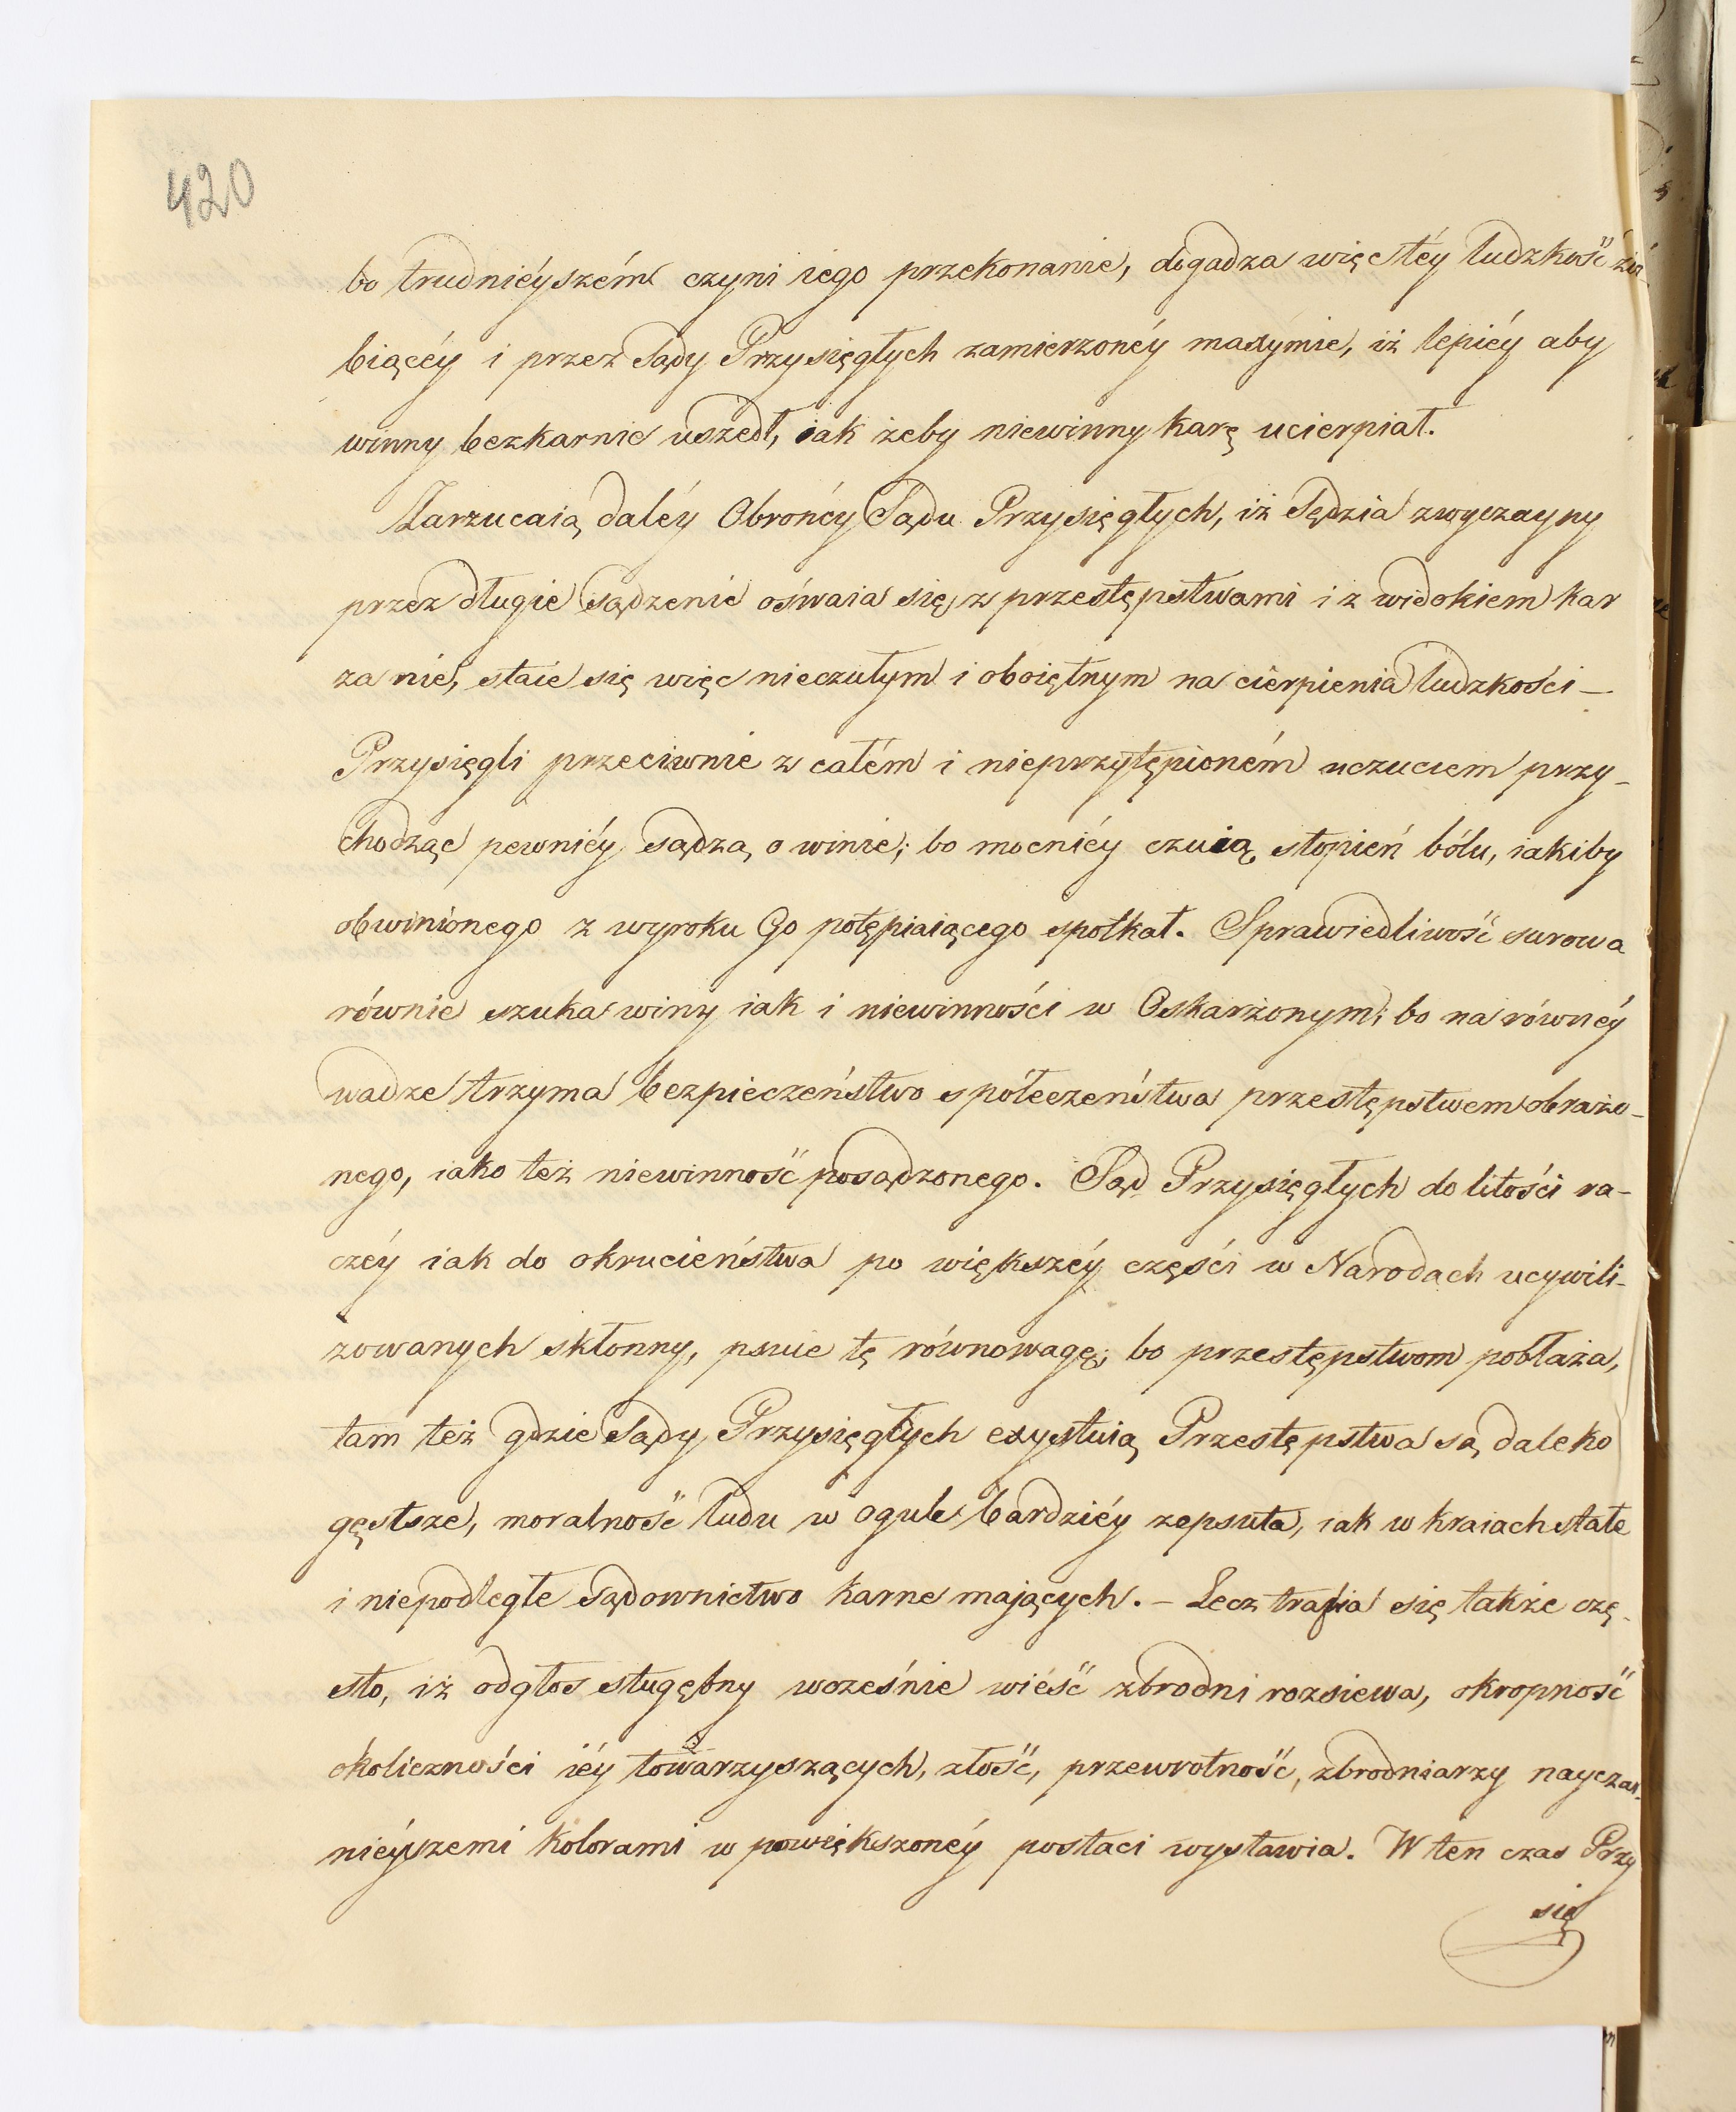 420
bo trudniéyszém czyni iego przekonanie, dogadza więc téy ludzkość
biącéy i przez Sądy Przysięgłych zamierzonéy maxymie, iż lepiéy aby
winny bezkarnie uszedł, iak żeby niewinny karę ucierpiał.
Zarzucaią daléy Obrońcy Sądu Przysięgłych, iż Sędzia zwyczayny
przez długie sądzenie oświaia się z przestępstwami i z widokiem kar
za nie, staie się więc nieczułym i oboiętnym na cierpienia ludzkości —
Przysięgli przeciwnie z całém i nieprzytępioném uczuciem przy-
chodząc pewniéy sądzą o winie; bo mocniéy czuią stopień bólu, iakiby
obwinionego z wyroku Go potępiaiącego spotkał. Sprawiedliwość surowa
równie szuka winy iak i niewinności w Oskarżonym; bo na równéy
wadze trzyma bezpieczeństwo społeczeństwa przestępstwem obrażo-
nego, iako też niewinność posądzonego. Sąd Przysięgłych do litości ra-
czéy iak do okrucieństwa po większéy części w Narodach ucywili-
zowanych skłonny, psuie tę równowagę; bo przestępstwom pobłaża,
tam też gdzie Sądy Przysięgłych exystuią Przestępstwa są daleko
gęstsze, moralność ludu w ogule bardziéy zepsuta, iak w kraiach stałe
i niepodległe Sądownictwo karne mających. — Lecz trafia się także czę-
sto, iż odgłos stugębny wcześnie wiéść zbrodni rozsiewa, okropność
okoliczności iéy towarzyszących, złość, przewrotność, zbrodniarzy nayczar-
niéyszemi kolorami w powiększonéy postaci wystawia. W ten czas Przy
się